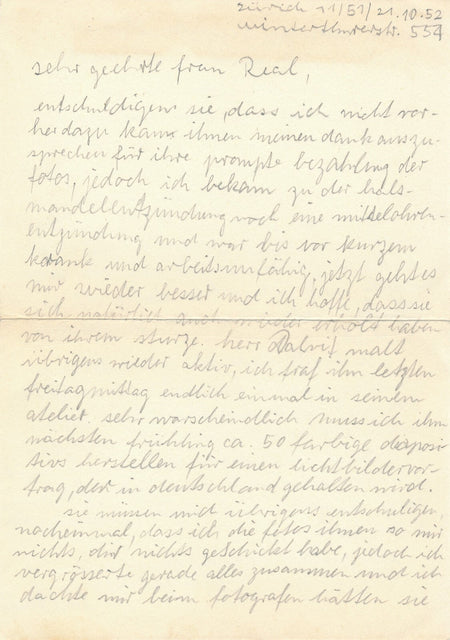 zürich 11/51/21.10.52
winterthurerstr. 554
sehr geehrte frau Real,
entschuldigen sie, dass ich nicht vor-
her dazu kam ihnen meinen dank auszu-
sprechen für ihre prompte bezahlung der
fotos, jedoch ich bekam zu der hals-
mandelentzündung noch eine mittelohren-
entzündung und war bis vor kurzem
krank und arbeitsunfähig, jetzt geht es
mir wieder besser und ich hoffe, dass sie
sich natürlich auch wieder erholt haben
von ihrem sturze. herr Dalvit malt
übrigens wieder aktiv, ich traf ihn letzten
freitagmittag endlich einmal in seinem
atelier. sehr warscheindlich muss ich ihm
nächsten frühling ca. 50 farbige diaposi-
tivs herstellen für einen lichtbildervor-
trag, der in deutschland gehalten wird.
sie müssen mich übrigens entschuldigen,
nocheinmal, dass ich die fotos ihnen so mir
nichts, dir nichts geschickt habe, jedoch ich
vergrösserte gerade alles zusammen und ich
dachte mir beim fotografen hätten sie